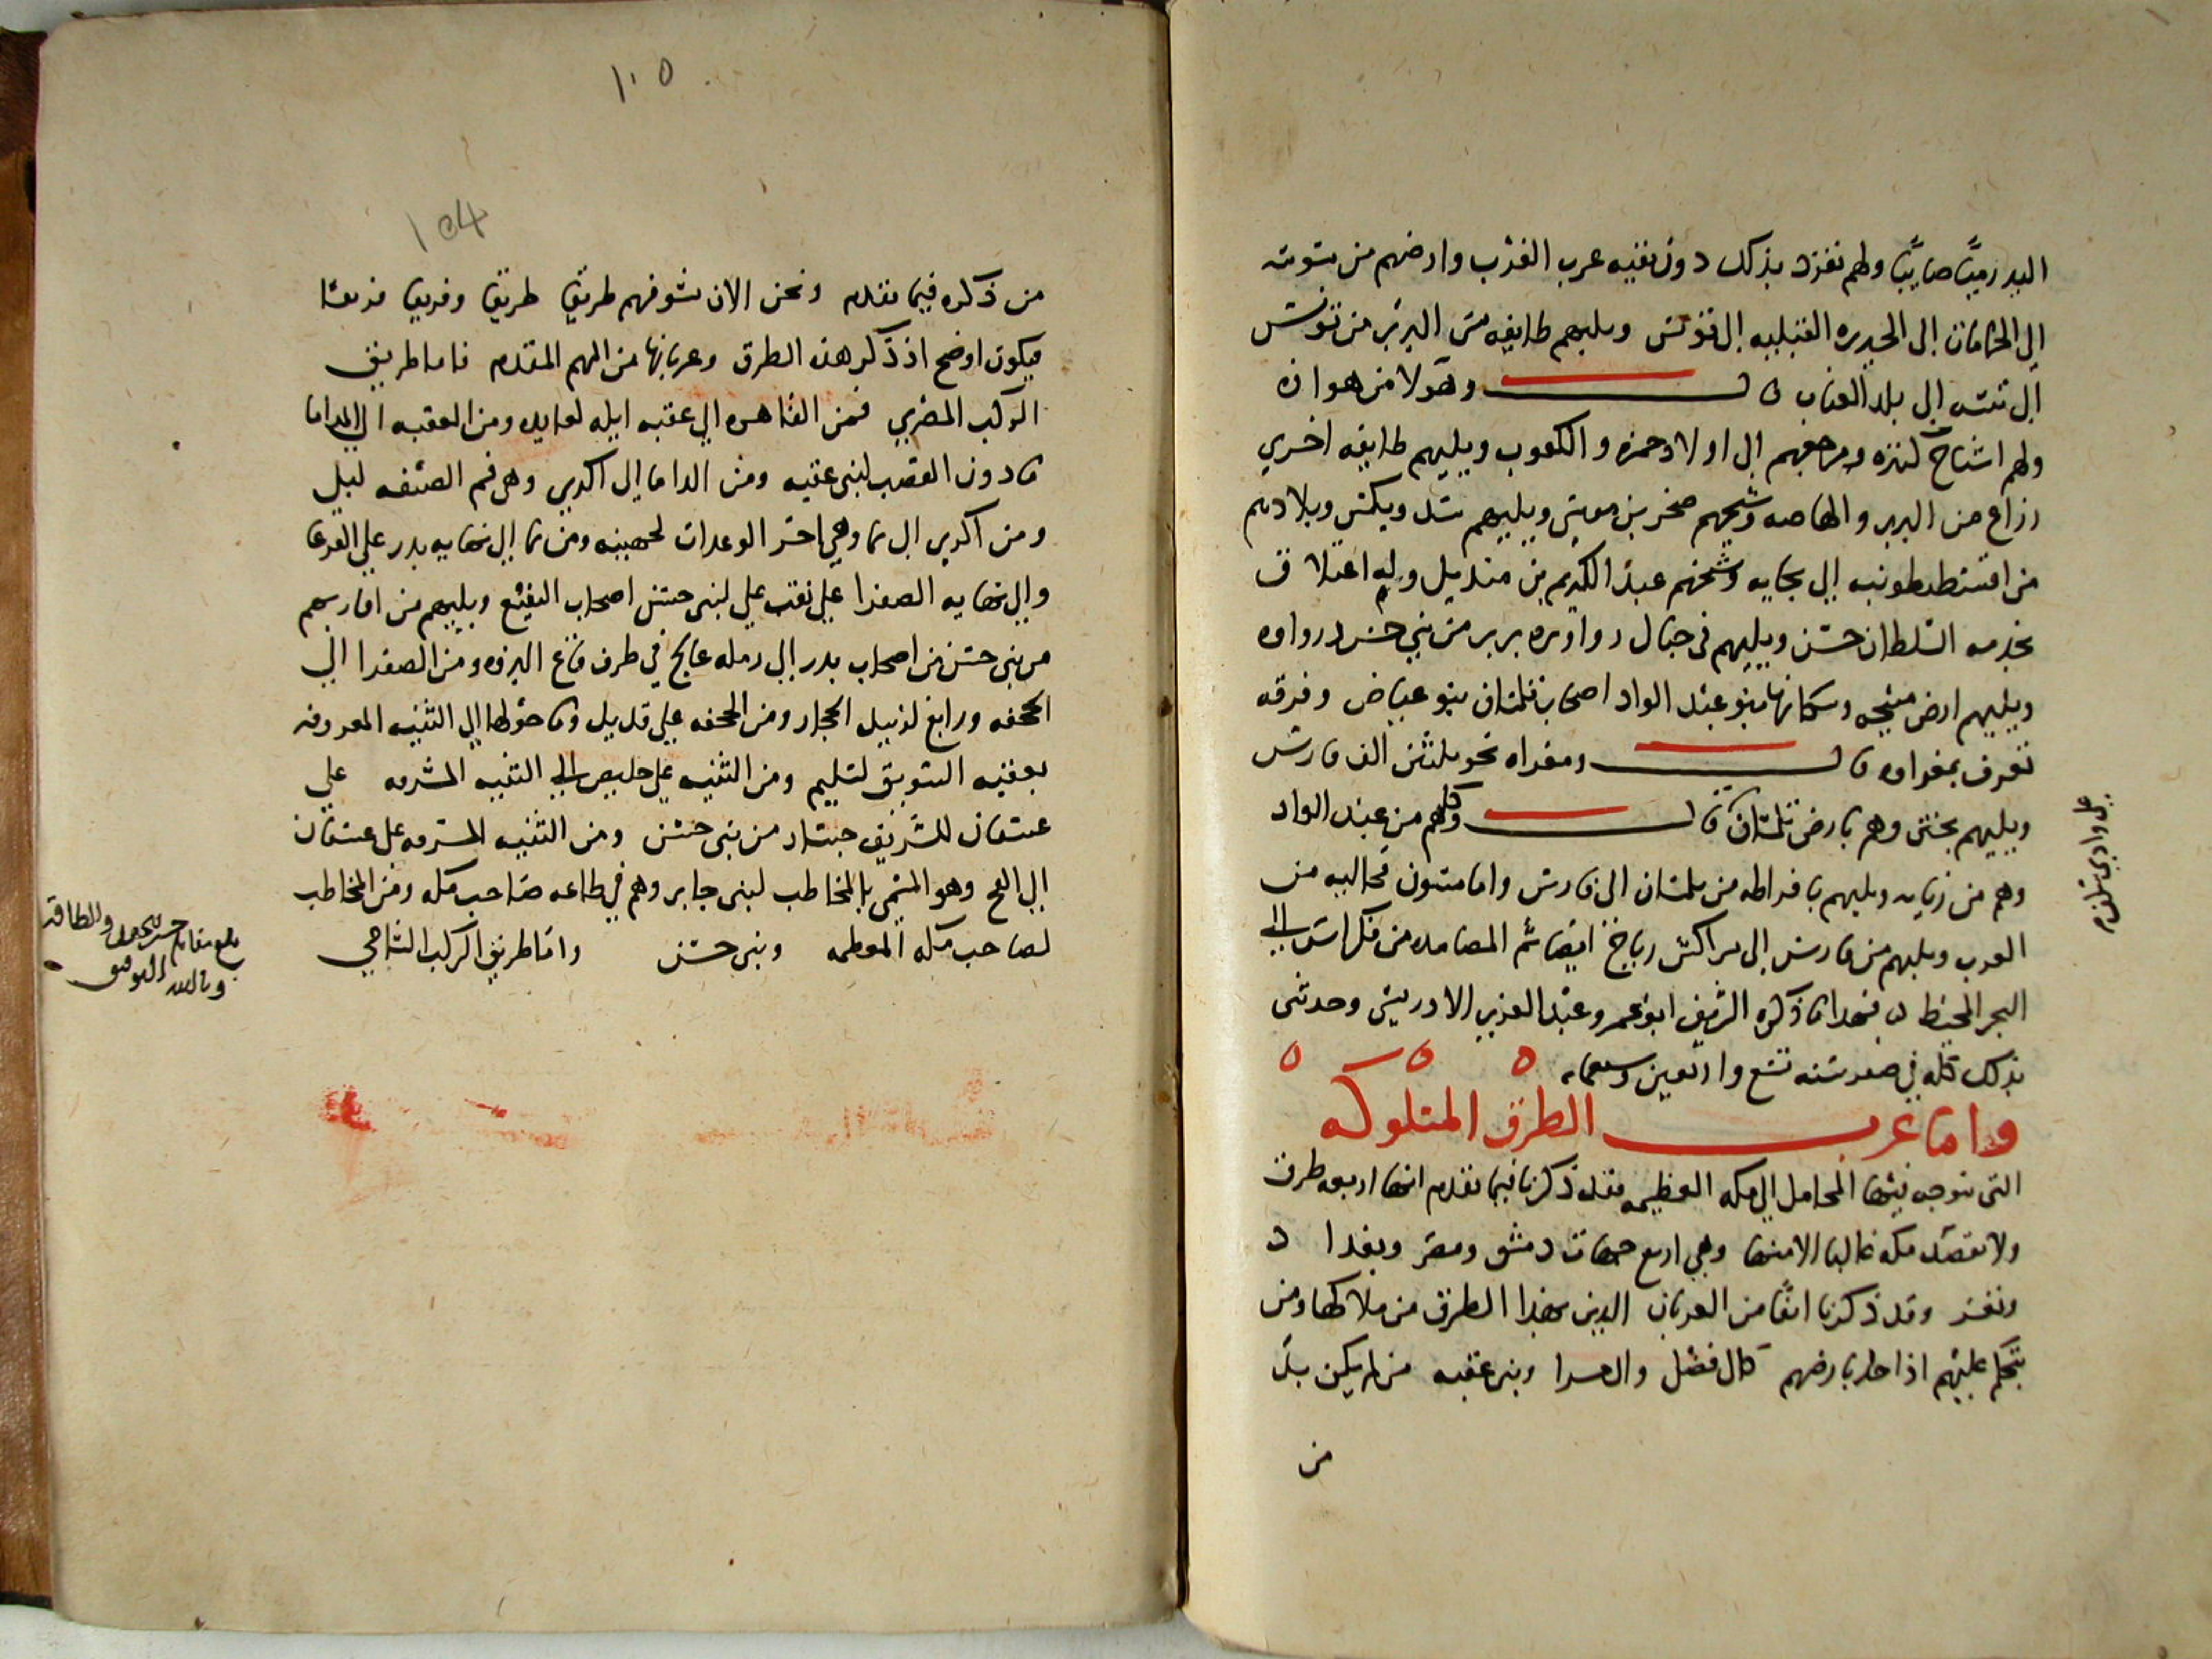 اليد رميًا صايبًا ولهم تفرد بذلك دون بقيه عرب الغرب وارضهم من سوسه
الى الحامات الى الجزيره القبليه الى تونس ويليهم طايفه من البربر من تونس
الى تبسه الى بلد العناب قال وهولا من هوازه
ولهم اشياخ كنزه ومرجعهم الى اولاد حمزه والكعوب ويليهم طايفه اخري
زراع من البربر والهاصه وشيخهم صخر بن موسى ويليهم سدويكش وبلادهم
من اقسنطيطونيه الى بجايه وشيخهم عبد الكريم بن منديل وله اعتلاق
بخدمه السلطان حسن ويليهم فى جبال زواوه بربر من بني حسن زواوه
ويليهم ارض متيجه وسكانها بنو عبد الواد اصحاب تلمسان بنو عياض وفرقه
تعرف بمغراوه قال ومغراه نحو ثلثين الف فارس
ويليهم بختى وهم بارض تلمسان قال وكلهم من عبد الواد
وهم من زنايه ويليهم بافراطه من تلمسان الى فارس واما متون فخاليه من
العرب ويليهم من فارس الى مراكش رباح ايضا ثم المصامده من مكراش الى
البحر المحيط فهذا ما ذكره الشريف ابو عمرو عبد العزيز الادريسي وحدثنى
بذلك كله في صفر سنه تسع واربعين وسبعمايه
واما عرب الطرق المسلوكه
التى تتوجه فيها المحامل الى مكه العظيمه فقد ذكرنا فيما تقدم انها اربعه طرق
ولا تقصد مكه غالبا الا منها وهي اربع جهات دمشق ومصر وبغداد
وتعز وقد ذكرنا انفا من العربان الذين بهذا الطرق من ملاكها ومن
يتحكم عليهم اذا حل بارضهم كال فضل وال مرا وبنى عقبه من لم يكن بد
من
على وادي شلف
١٠٥
104
من ذكره فيما تقدم ونحن الان نسوقهم طريقا طريقا وفريقا فريقا
فيكون اوضح اذ ذكر هذه الطرق وعربانها من المهم المقدم فاما طريق
الركب المصري فمن القاهره الى عقبه ايله لعايده ومن العقبه الى الداما
ما دون القصب لبنى عقبه ومن الداما الى اكدي وهى فم الضيقه لبلي
ومن اكدي الى نما وهى اخر الوعرات لجهينه ومن نما الى نهايه بدر على الفرعا
والى نهايه الصفرا على نقب علي لبنى حسن اصحاب الينبع ويليهم من اقاربهم
من بنى حسن من اصحاب بدر الى رمله عالج في طرف قاع البزوه ومن الصفرا الى
الجحفه ورابغ لزبيد الحجاز ومن الجحفه على قديد وما حولها الى الثنيه المعروفه
بعقبه السويق لسليم ومن الثنيه على خليص الى الثنيه المشرفه على
عسفان للشريف جسار من بنى حسن ومن الثنيه المشرفه على عسفان
الى الفج وهو المسمى بالمخاطب لبنى جابر وهم في طاعه صاحب مكه ومن المخاطب
لصاحب مكه المعظمه وبنى حسن واما طريق الركب الشامي
بلغ مقابله حسب الجهد والطاقه
وبالله التوفيق